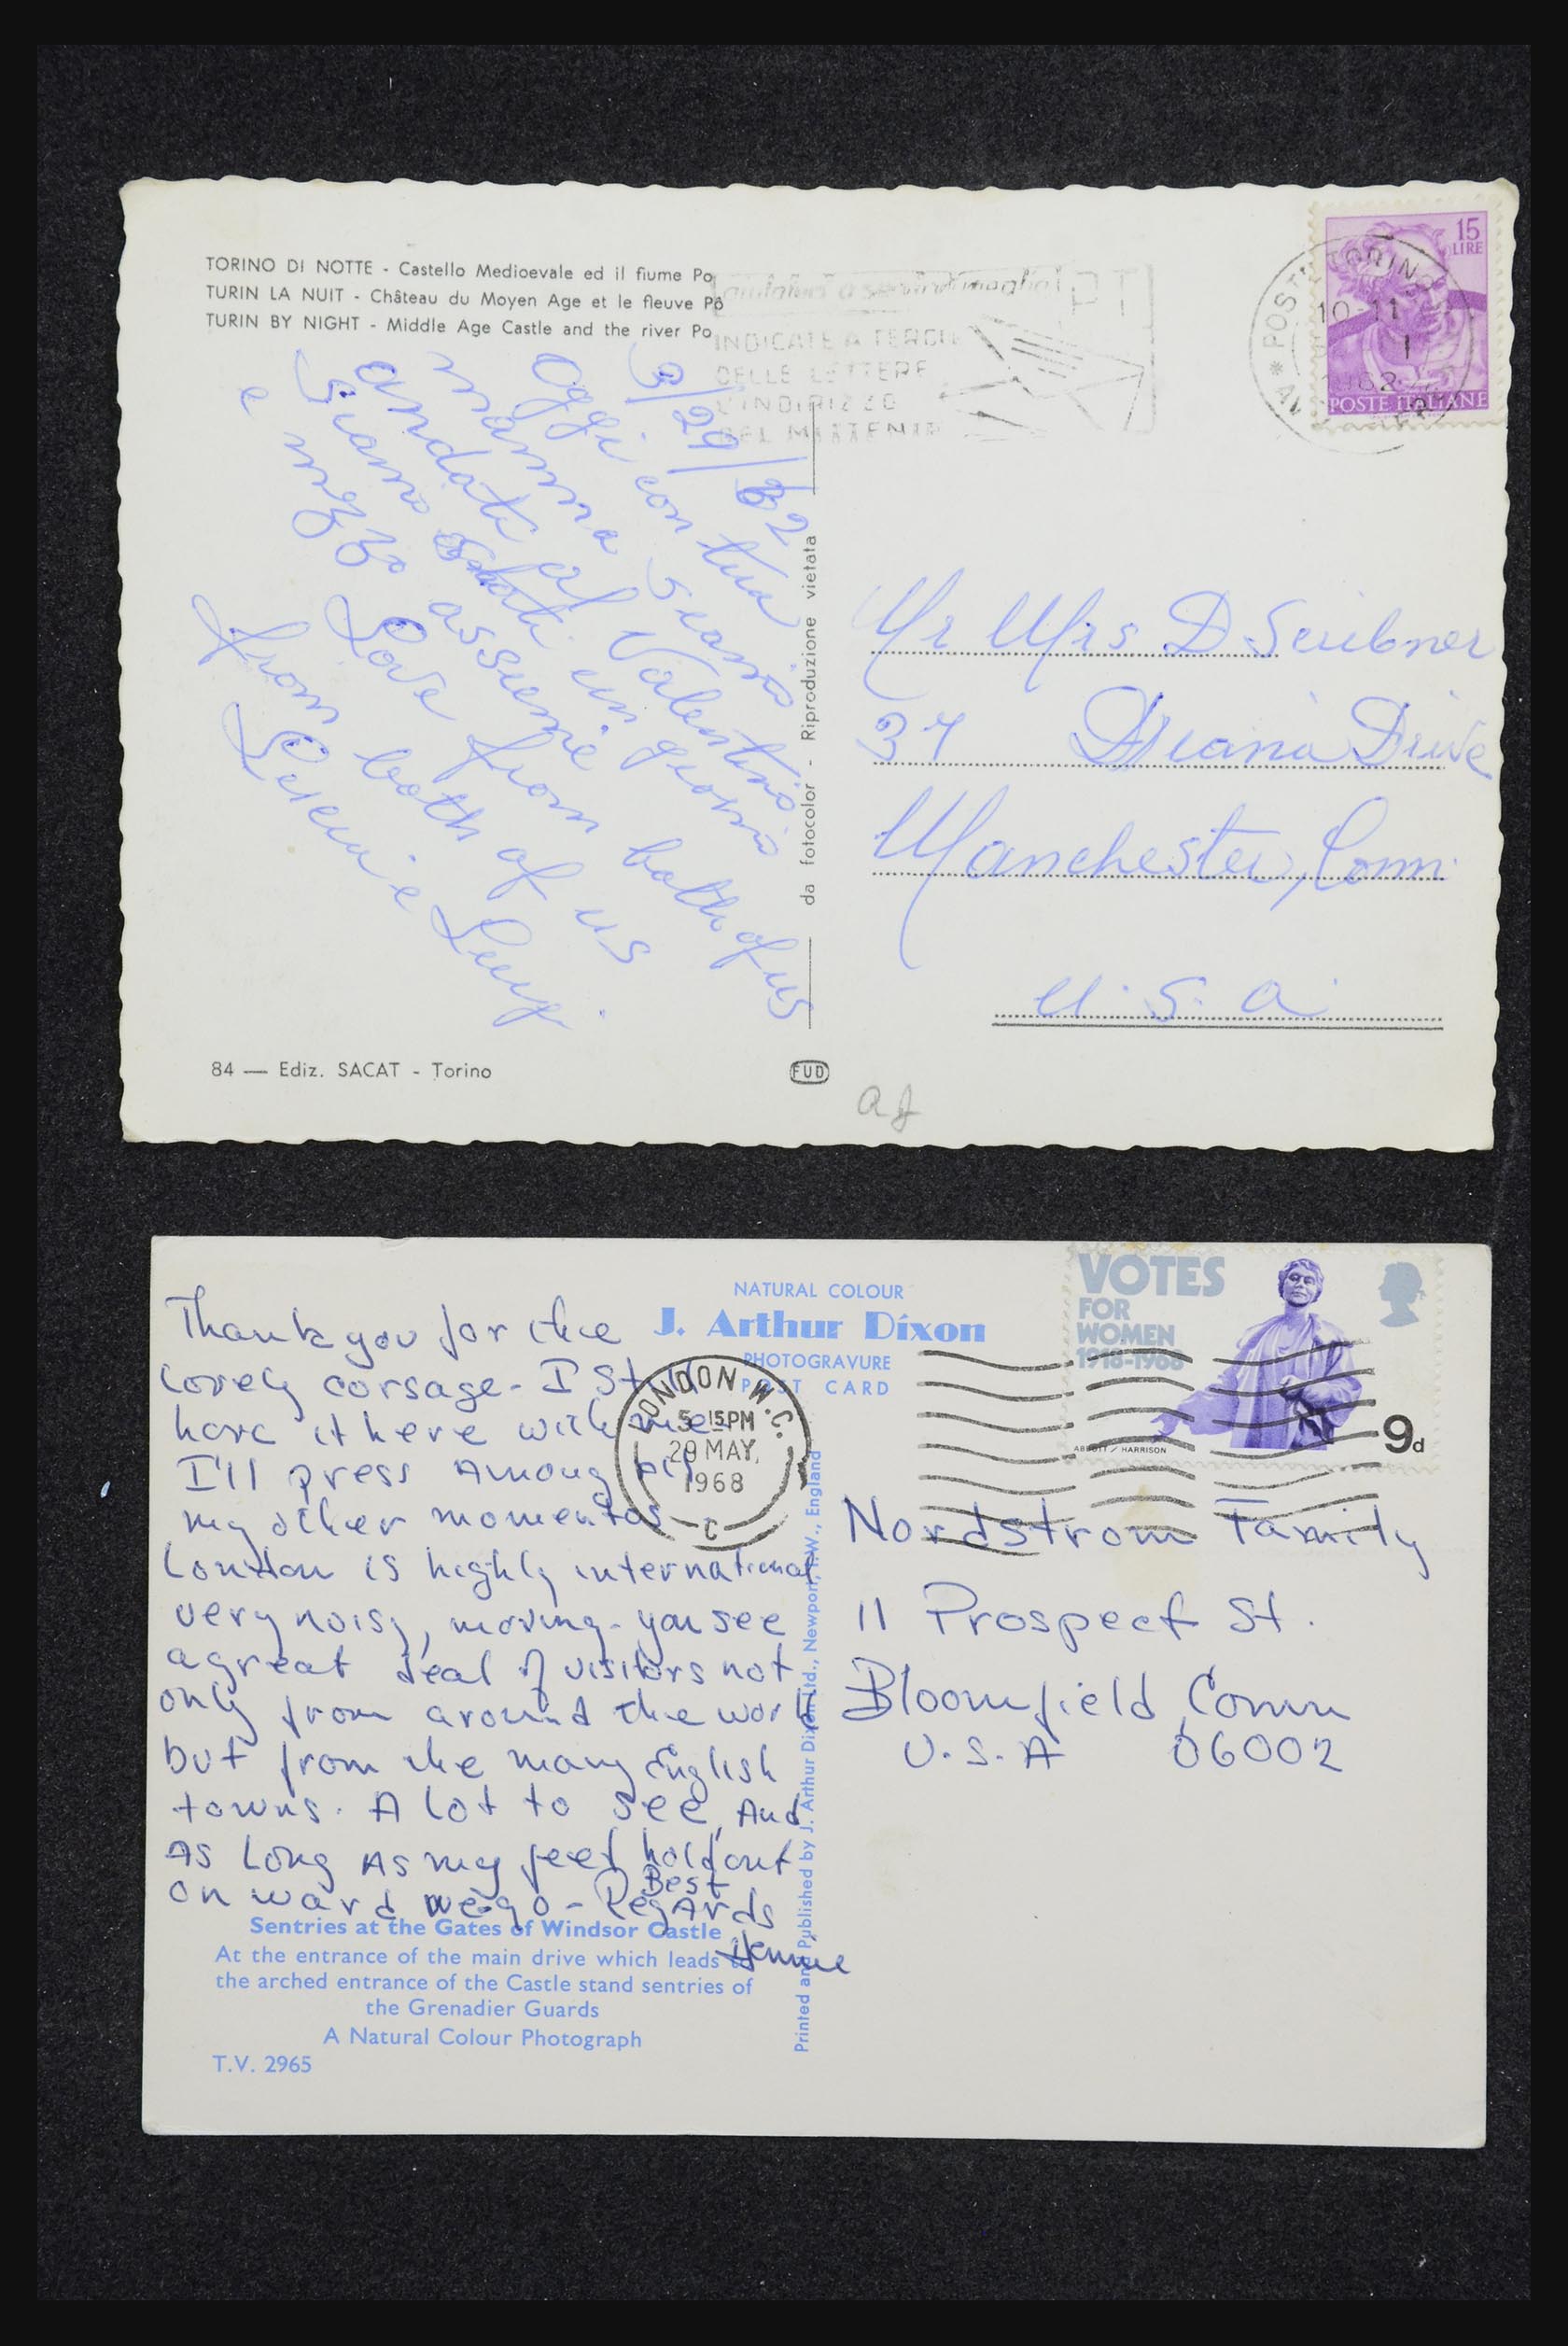 TORINO DI NOTTE - Castello Medioevale ed il fiume Po
TURIN LA NUIT - Château du Moyen Age et le fleuve Pô
TURIN BY NIGHT - Middle Age Castle and the river Po
PT
INDICATE A TERGO
DELLE LETTERE
L'INDIRIZZO
DEL MITTENTE
15
LIRE
POSTE ITALIANE
POSTE TORINO
10-11
1
1962
/29/62
Oggi con tua
mamma siamo
andati al Valentino
Siamo stati un giorno
e mezzo assieme
Love from both of us
from both of us
e Luiz
Mr Mrs D Scribner
37 Diana Drive
Manchester, Conn.
U. S. A.
da fotocolor - Riproduzione vietata
84 — Ediz. SACAT - Torino
FUD
NATURAL COLOUR
J. Arthur Dixon
PHOTOGRAVURE
POST CARD
VOTES
FOR
WOMEN
1918-1968
ABBOTT / HARRISON
9d
LONDON W.C.
5-15PM
29 MAY,
1968
C
Thank you for the
lovely corsage - I still
have it here with me
I'll press Among all
my other momentos
London is highly international
very noisy, moving - you see
a great deal of visitors not
only from around the world
but from the many English
towns. A lot to see, And
As Long As my feet hold out
onward we go - Best Regards
Jennie
Nordstrom Family
11 Prospect St.
Bloomfield, Conn
U.S.A 06002
Printed and Published by J. Arthur Dixon Ltd., Newport, I.W., England
Sentries at the Gates of Windsor Castle
At the entrance of the main drive which leads to
the arched entrance of the Castle stand sentries of
the Grenadier Guards
A Natural Colour Photograph
T.V. 2965